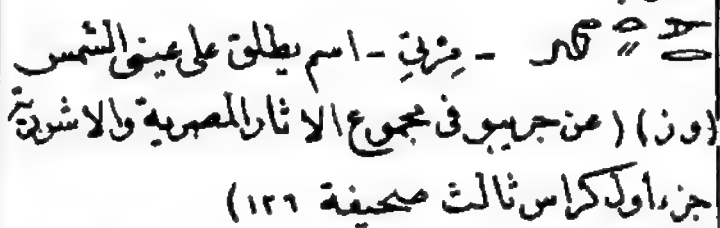 - مِرْتِي - اسم يطلق على عينى الشمس
(و ز) (عن جريبو فى مجموع الاثار المصرية والاشورية
جزء أول كراس ثالث صحيفة ١٢٦)